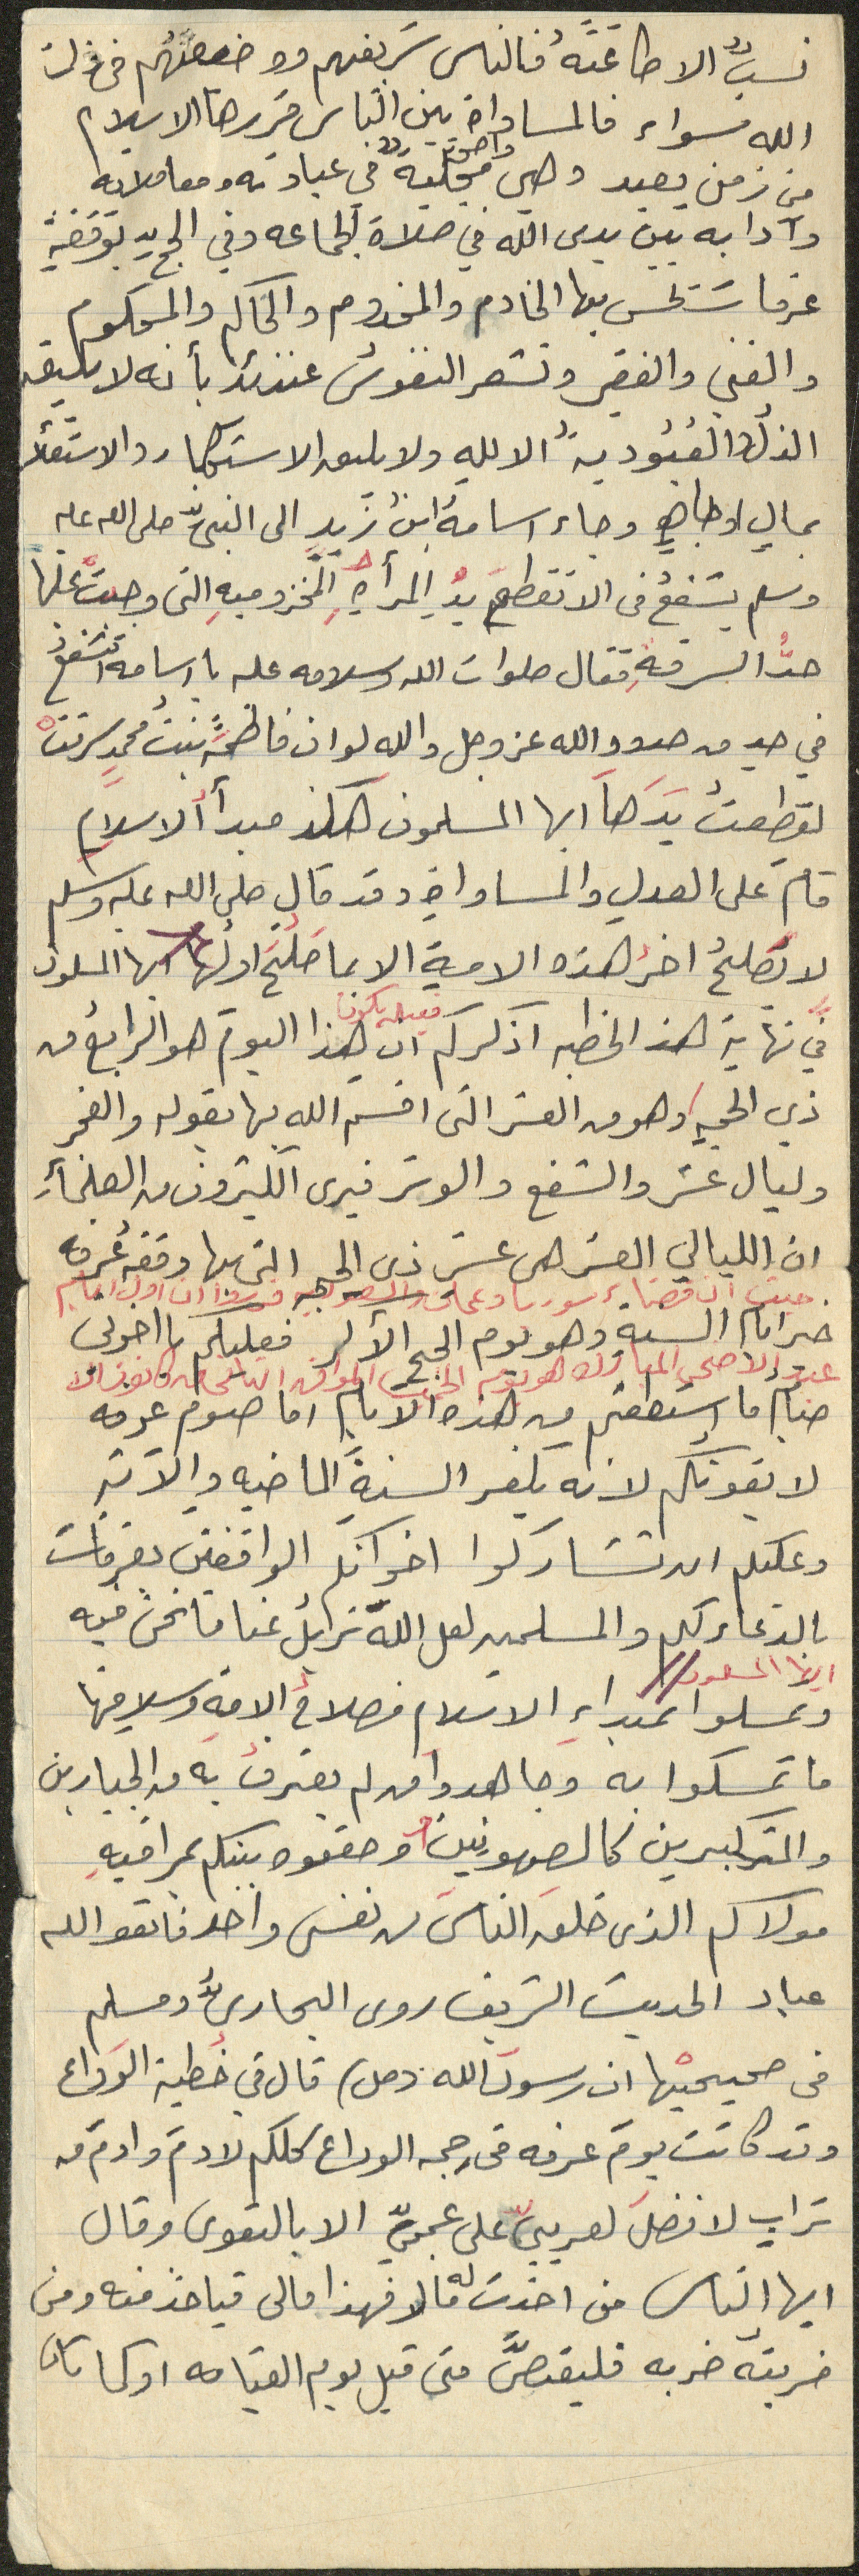 نسبٌ الا طاعَتَهُ فالناس شريفهم ووضيعهُم في ذات
الله سواء فالمساواة بين الناس قررها الاسلام
من زمن بعيد وهي واضحة جليةٌ في عباداته ومعاملاته
وآدابه بين يدى الله في صلاة الجماعه وفي الحج يوم وقفةِ
عرفات يحس بها الخادم والمخدوم والحاكم والمحكوم
والغني والفقير وتشعر النفوسُ عندئذ بأنه لا يليق
الذلُ والعُبُوديةُ الا للهِ ولا يليق الاستكبار والاستعلاء
بمالٍ او جاهٍ وجاء اسامةُ ابنُ زيدٍ الى النبيّ صلى الله عليه
وسلم يشفعُ في الا تقطع يدُ المرأةِ المخزوميهِ التى وجبَ عليها
حدُّ السرقةِ فقال صلوات الله وسلامه عليه يا اسامه اتشفعُ
في حدٍ من حدود الله عز وجل والله لو ان فاطمةَ بنتُ محمدٍ سرقت
لقطعتُ يَدَهَا ايها المسلمون هكذا مبدأ الاسلامِ
قام على العدلِ والمساواةِ وقد قال صلى الله عليه وسلم
لا يَصلحُ اخرُ هذه الامةِ الا بما صَلُحَ اولُها ايها المسلمون
في نهاية هذه الخطبه اذكركم ان هذا اليومَ هو الرابعُ من
فيه يكون
ذي الحجةِ وهو من العشر التى اقسم الله بها بقوله والفجر
وليال عشر والشفع والوتر فيرى الكثيرون من العلمآءِ
ان الليالي العشر هى عشر ذى الحجه التى بها وقفه عُرفه
حيث ان قضاء سوريا وعمان والسعوديه قرروا ان اول ايام
خير ايام السنةِ وهو يوم الحج الأكبر فعليكم يا اخوتى
عيد الاضحى المبارك هو يوم الخميس الموافق
صيام ما استطعتم من هذه الايام اما صوم عرفه
لا يفوتكم لانه يكفر السنةَ الماضيه والآتيه
وعليكم ان تشاركوا اخوانكم الواقفين بعرفات
بالدعاء لكم والمسلمين لعل اللهَ يزيلُ عنا ما نحنُ فيه
ايها المسلمون
وتمسكوا بمبداءِ الاسلام فصلاحُ الامةِ وسلامتها
ما تمسكوا به وجاهدوا من لم يعترفُ به من الجبارين
والمتكبرين كالصهيونيين وحققوه بينكم بمراقبهِ
مولاكم الذى خلق الناسَ من نفسٍ واحده فاتقوا الله
عباد الحديث الشريف روى البخاريُّ ومسلم
في صحيحيْهما ان رسولَ الله (ص) قال في خُطبة الوَداع
وقد كانت يومَ عرفه في حجه الوداع كلكم لادمَ وادمَ من
ترابٍ لا فضلَ لعربيّ على عجميّ الا بالتقوى وقال
ايها الناس من اخذت له مالا فهذا مالى فياخذ منه ومن
ضربته ضربه فليقتصَّ منى قبل يوم القيامه او كما قال